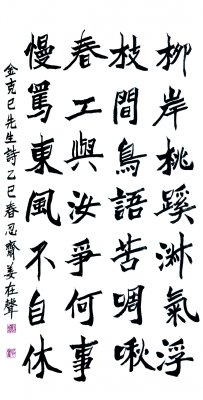 柳岸桃蹊淑氣浮
枝間鳥語苦啁啾
春工與汝爭何事
慢罵東風不自休
金克己先生詩乙巳春忍齋姜在聲